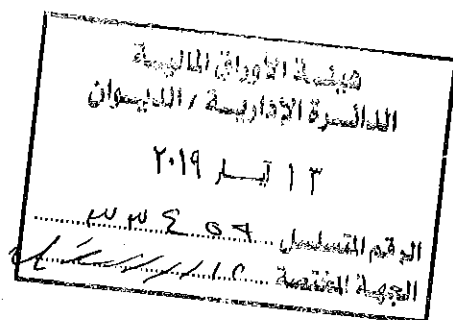 هيئة الأوراق المالية
الدائرة الإدارية / الديوان
١٣ آيار ٢٠١٩
الرقم المتسلسل
الجهة المختصة